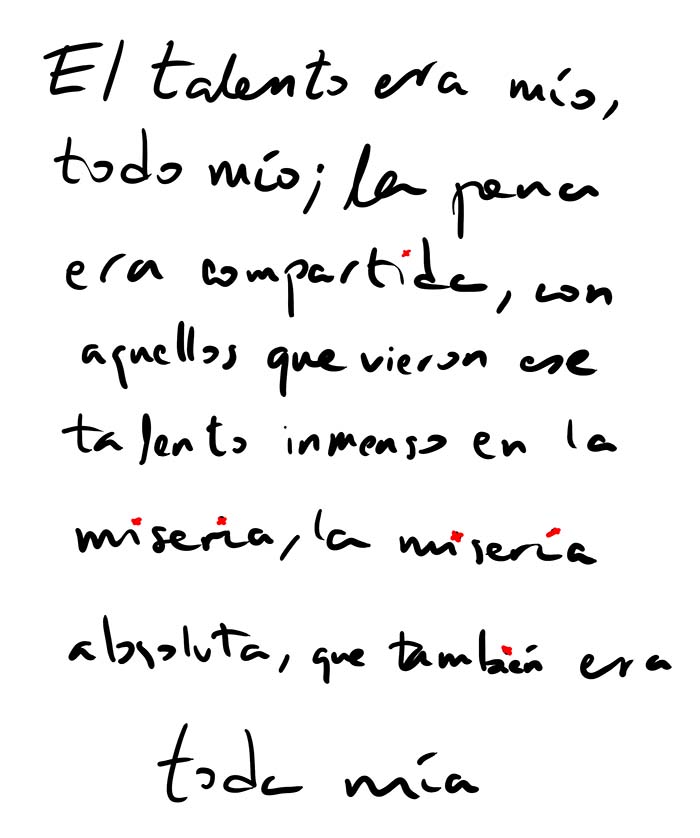 El talento era mío,
todo mío; la pena
era compartida, con
aquellos que vieron ese
talento inmenso en la
miseria, la miseria
absoluta, que también era
toda mía